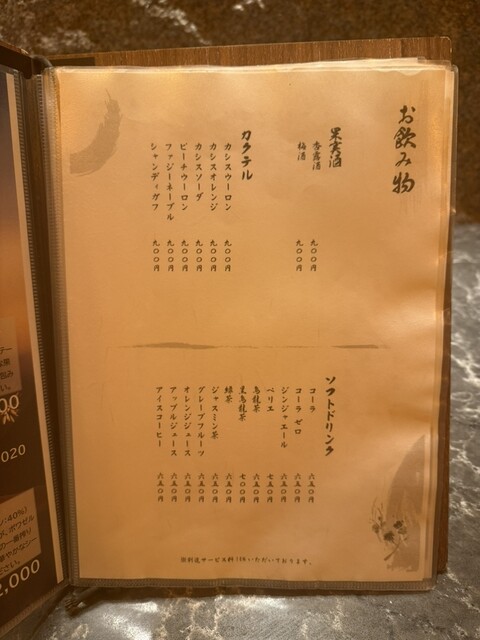 お飲み物
果実酒
杏露酒 九〇〇円
梅酒 九〇〇円
カクテル
カシスウーロン 九〇〇円
カシスオレンジ 九〇〇円
カシスソーダ 九〇〇円
ピーチウーロン 九〇〇円
ファジーネーブル 九〇〇円
シャンディガフ 九〇〇円
ソフトドリンク
コーラ 六五〇円
コーラ ゼロ 六五〇円
ジンジャエール 六五〇円
ペリエ 七五〇円
烏龍茶 六五〇円
黒烏龍茶 七〇〇円
緑茶 六五〇円
ジャスミン茶 六五〇円
グレープフルーツ 六五〇円
オレンジジュース 六五〇円
アップルジュース 六五〇円
アイスコーヒー 六五〇円
020
ン:40%)
2,000